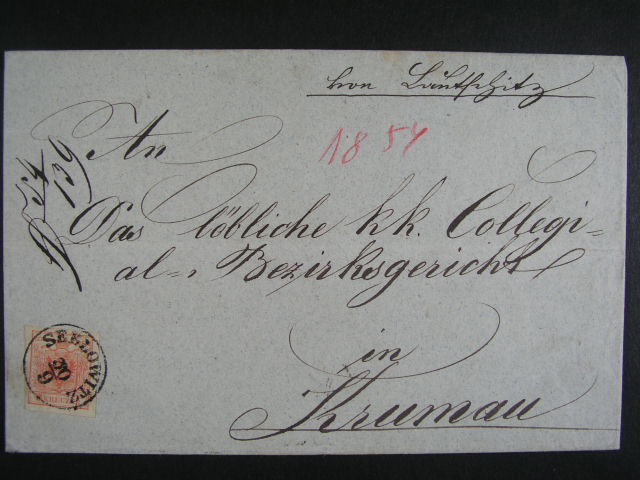 von Lautschitz
1854
An
139
Das löbliche kk. Collegi=
al= Bezirksgericht
in
Krumau
SEELOWITZ
20
9